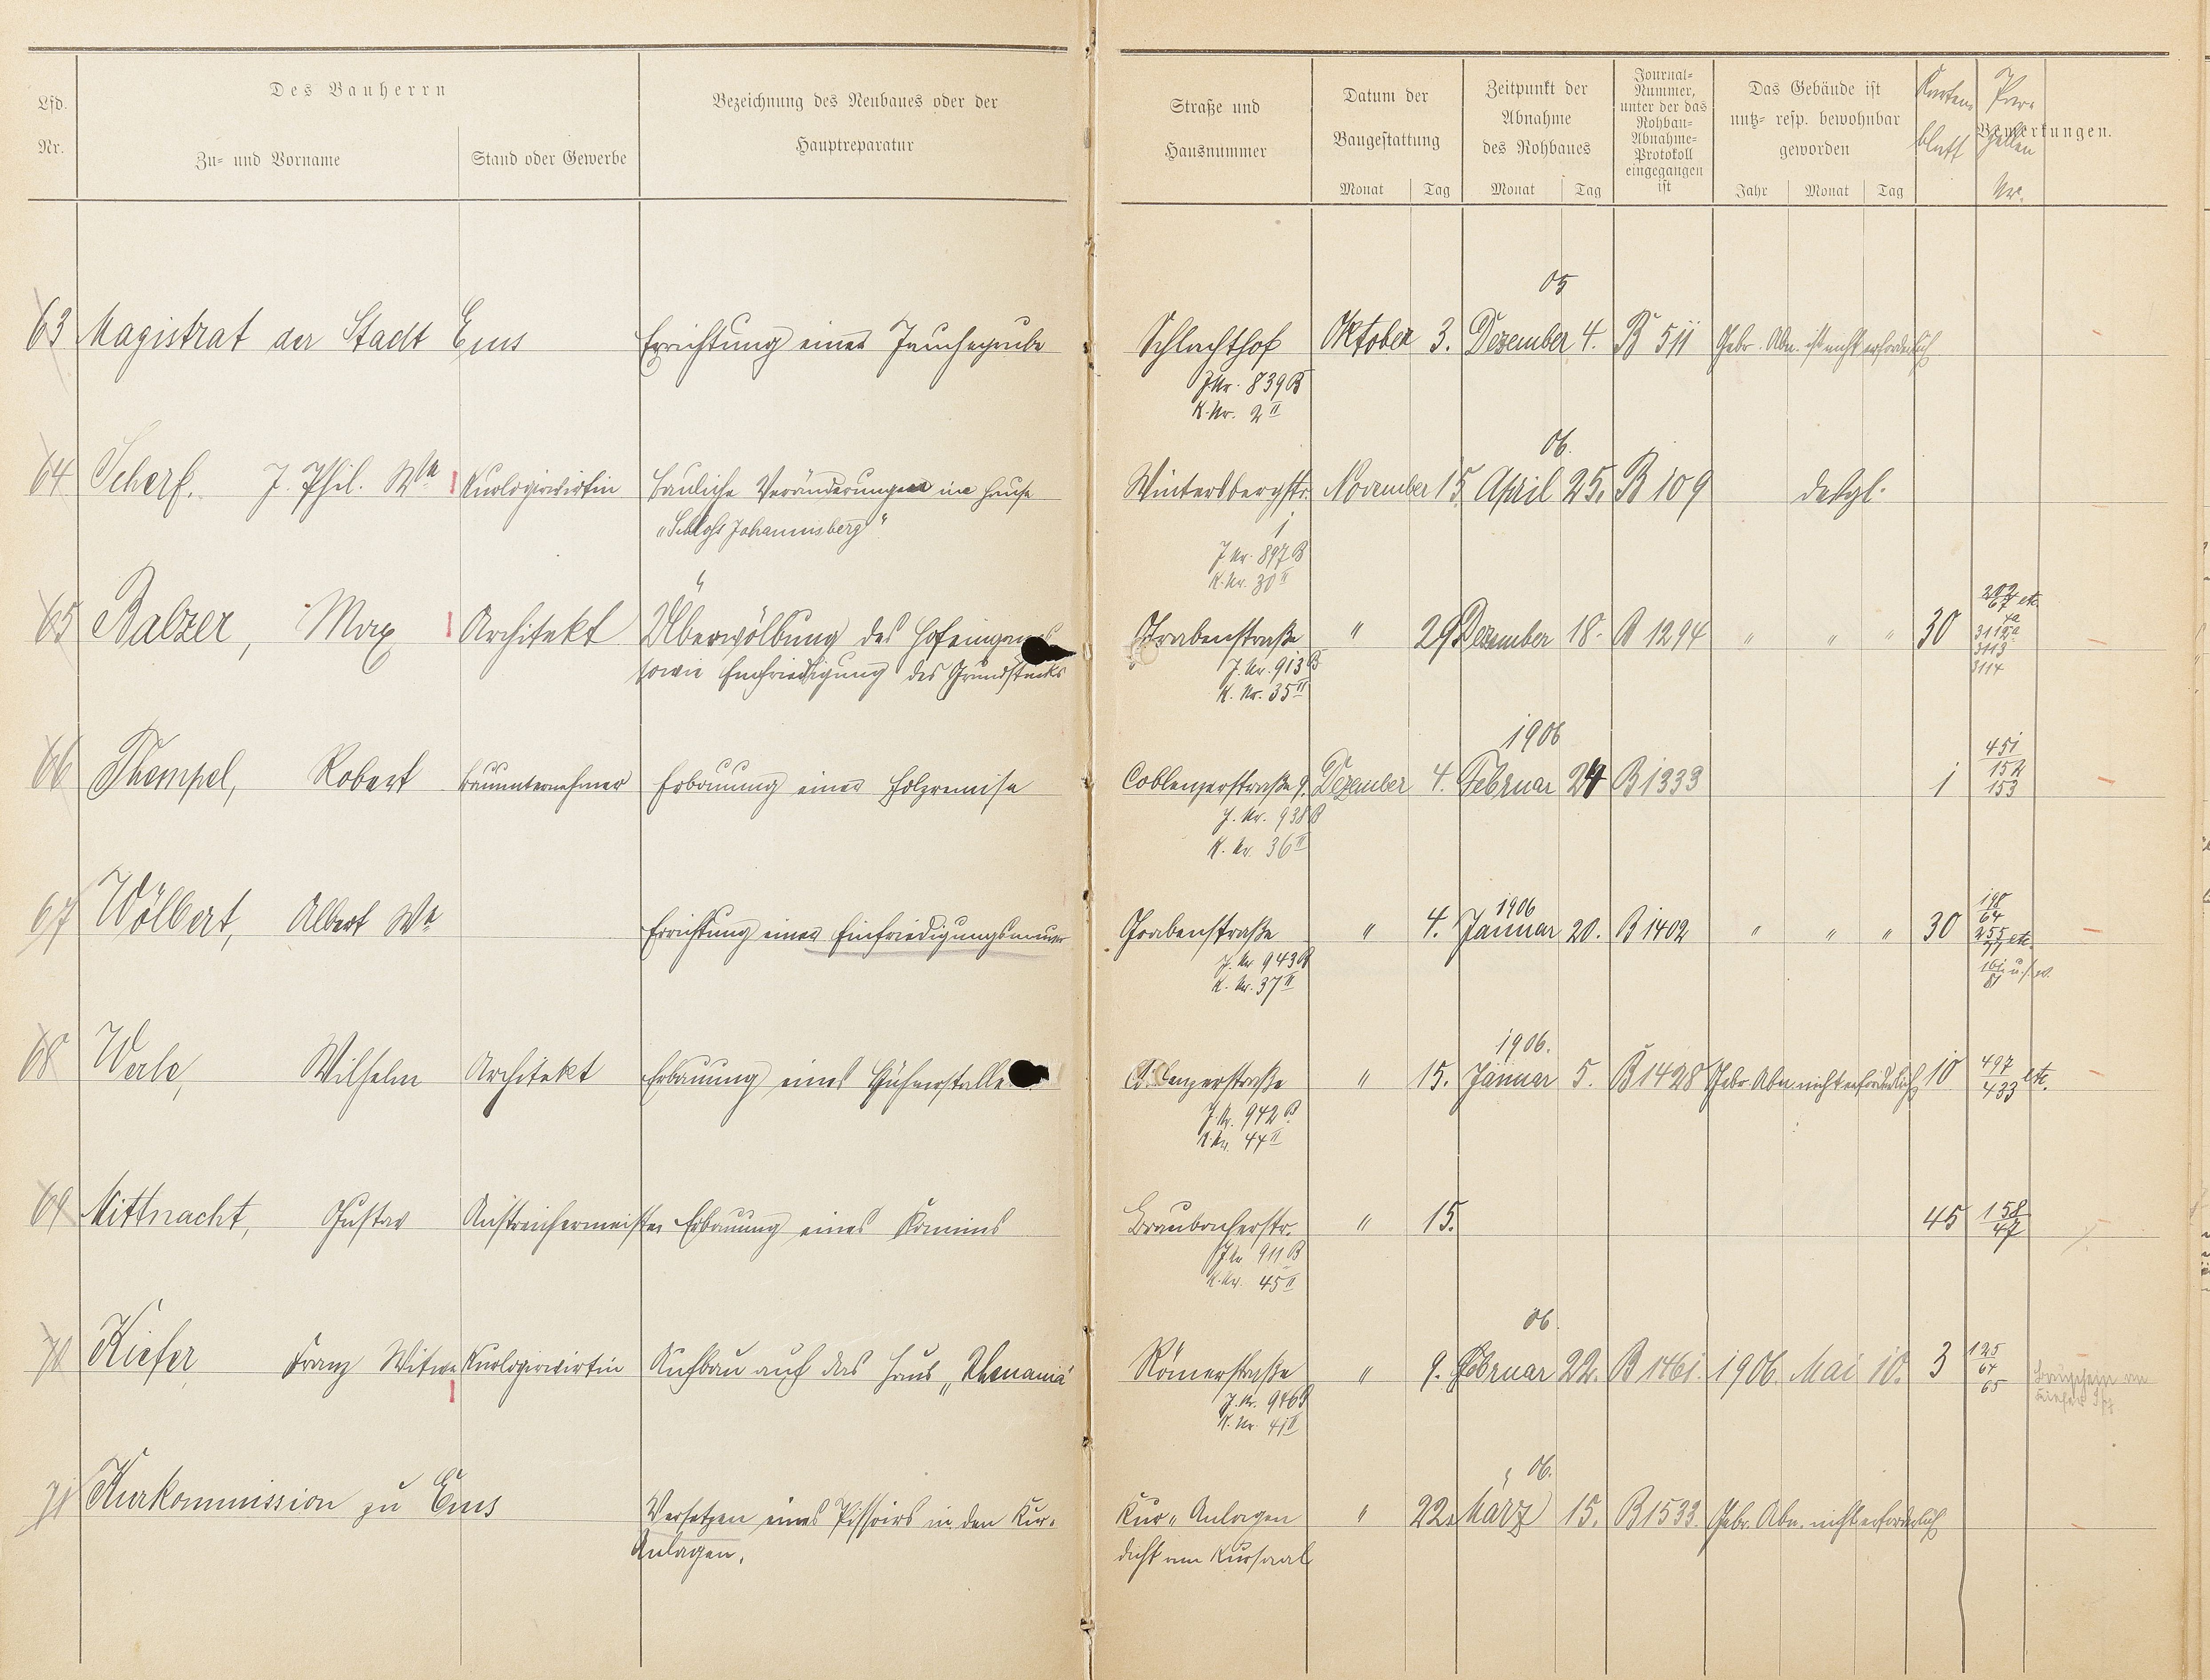 Lfd. Nr.
Des Bauherrn
Zu- und Vorname
Stand oder Gewerbe
Bezeichnung des Neubaues oder der Hauptreparatur
Straße und Hausnummer
Datum der Baugestattung
Monat Tag
Zeitpunkt der Abnahme des Rohbaues
Monat Tag
Journal-Nummer, unter der das Rohbau-Abnahme-Protokoll eingegangen ist
Das Gebäude ist nutz- resp. bewohnbar geworden
Jahr Monat Tag
Karten blatt
Par zellen Nr.
Bemerkungen.
05
63 Magistrat der Stadt Ems Errichtung einer Jauchegrube Schlachthof Oktober 3. Dezember 4. B 511 Gebr. Abn. ist nicht erforderlich
J.Nr. 839 B
K.Nr. 2 II
06.
64 Scherf. J. Phil. We Kurlogirwirtin bauliche Veränderungen im Hause Wintersbergstr. November 15. April 25. B 109 desgl.
"Schloß Johannisberg" 1
J.Nr. 897 B
K.Nr. 30 II
65 Balzer, Max Architekt Überwölbung des Hofeinganges Grabenstraße " 29 Dezember 18. B 1294 " " " 30
sowie Einfriedigung des Grundstücks J.Nr. 913 B 3113
K.Nr. 35 II 3114
1906
66 Thempel, Robert Bauunternehmer Erbauung einer Holzremise Coblenzerstraße 9. Dezember 4. Februar 24 B 1333 1 451 154 153
J.Nr. 938 B
K.Nr. 36 II
1906
67 Wölbert, Albert We Errichtung einer Einfriedigungsmauer Grabenstraße " 4. Januar 20. B 1402 " " " 30 198/64 255/77 etc.
J.Nr. 943 B 161/81 u.s.w.
K.Nr. 37 II
1906.
68 Werle, Wilhelm Architekt Erbauung eines Hühnerstalles Coblenzerstraße " 15. Januar 5. B 1428 Gebr. Abn. nicht erforderlich 10 497/433 etc.
J.Nr. 942 B
K.Nr. 44 II
69 Mittnacht, Gustav Anstreichermeister Erbauung eines Kamins Braubacherstr. " 15. 45 158/47
J.Nr. 911 B
K.Nr. 45 II
06.
70 Kiefer Franz Witwe Kurlogirwirtin Aufbau auf das Haus "Rhenania" Römerstraße " 9. Februar 22. B 1461. 1906 Mai 10. 3 125 64 65
J.Nr. 946 B
K.Nr. 41 II
06.
71 Kurkommission zu Ems Versetzen eines Pissoirs in den Kur- Kur-Anlagen " 22. März 15. B 1533. Gebr. Abn. nicht erforderlich
Anlagen. dicht am Kursaal